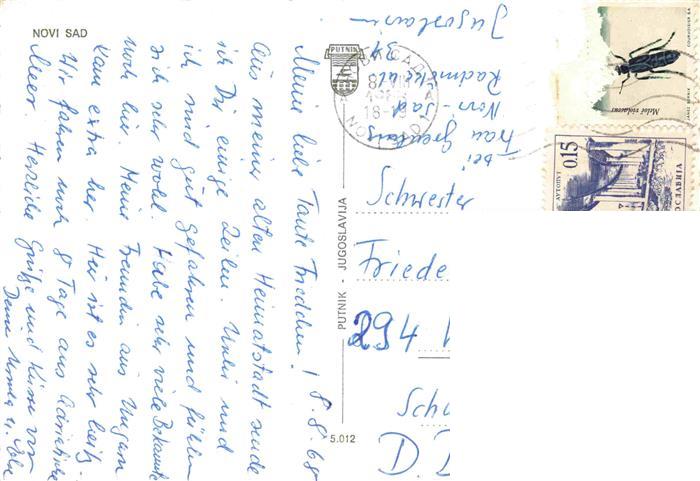 NOVI SAD
Meine liebe Tante Friedchen! 8.8.68
Aus meiner alten Heimatstadt sende
ich Dir einige Zeilen. und
ich sind gut gefahren und fühlen
sich sehr wohl. Habe sehr viele Bekannte
noch hier. Meine Freundin aus Ungarn
kam extra her. Hier ist es sehr heiß.
Wir fahren noch 8 Tage ans
Meer. Herzliche Grüße und Küsse von
Deine u.
PUTNIK
PUTNIK - JUGOSLAVIJA
5.012
18-19
NOVI SAD
bei
Frau
Novi-Sad
34
Schwester
Friede
294 1
Sch
D.
Meloë violaceus
0.15
AUTOPUT